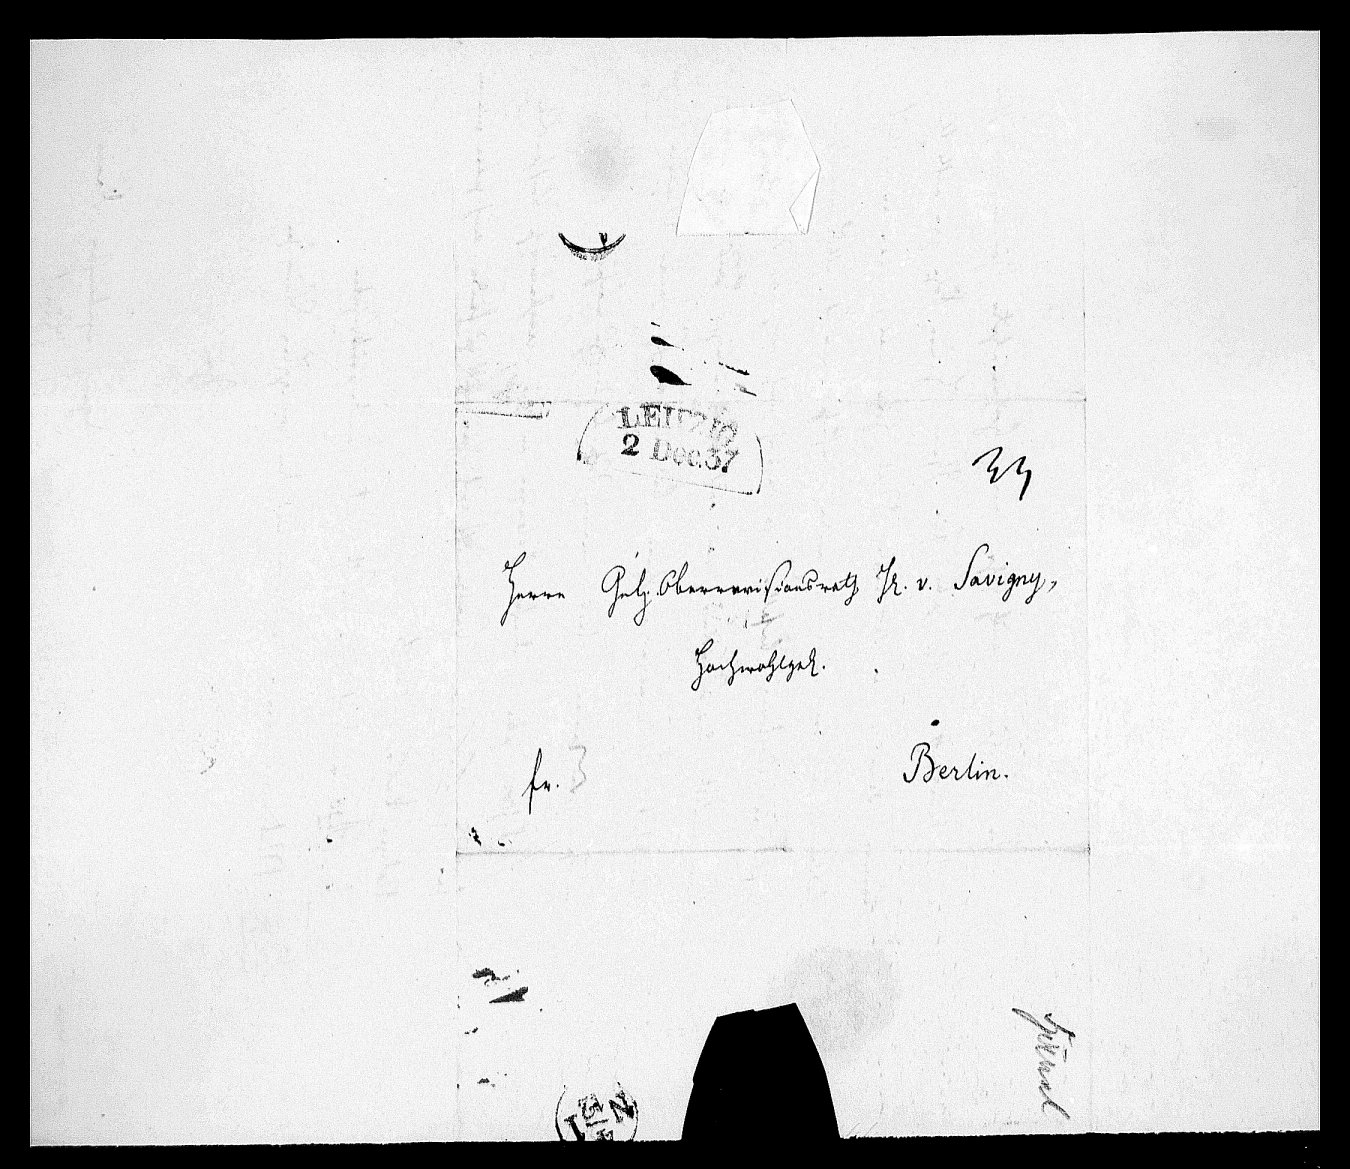 LEIPZIG
2 Dec. 37
Herrn Geh. Oberrevisionsrath Dr. v. Savigny,
Hochwohlgeb.
fr. 3
Berlin.
Hänel